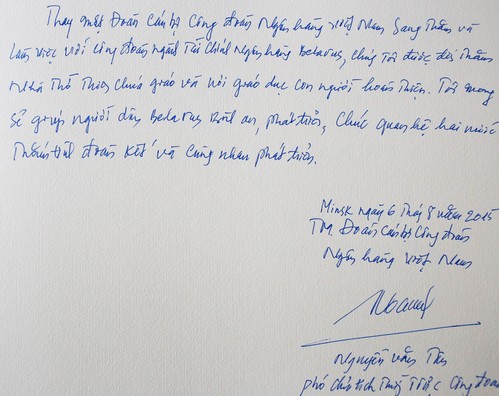 Thay mặt Đoàn cán bộ Công đoàn Ngân hàng Việt Nam Sang thăm và
làm việc với công đoàn ngành Tài chính Ngân hàng Belarus, chúng tôi được đến thăm
Nhà thờ Thiên chúa giáo và nơi giáo dục con người hoàn thiện. Tôi mong
sẽ giúp người dân Belarus bình an, phát triển, chúc quan hệ hai nước
đoàn kết và cùng nhau phát triển.
Minsk ngày 6 tháng 8 năm 2015
TM. Đoàn cán bộ Công đoàn
Ngân hàng Việt Nam
Nguyễn Văn Tân
phó Chủ tịch Thường trực Công đoàn